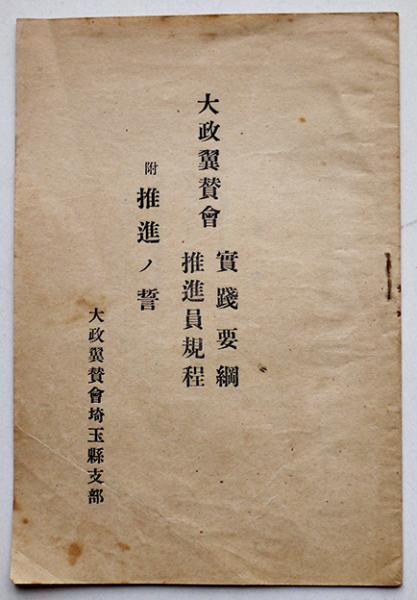 大政翼賛會
實踐要綱
推進員規程
附 推進ノ誓
大政翼賛會埼玉縣支部